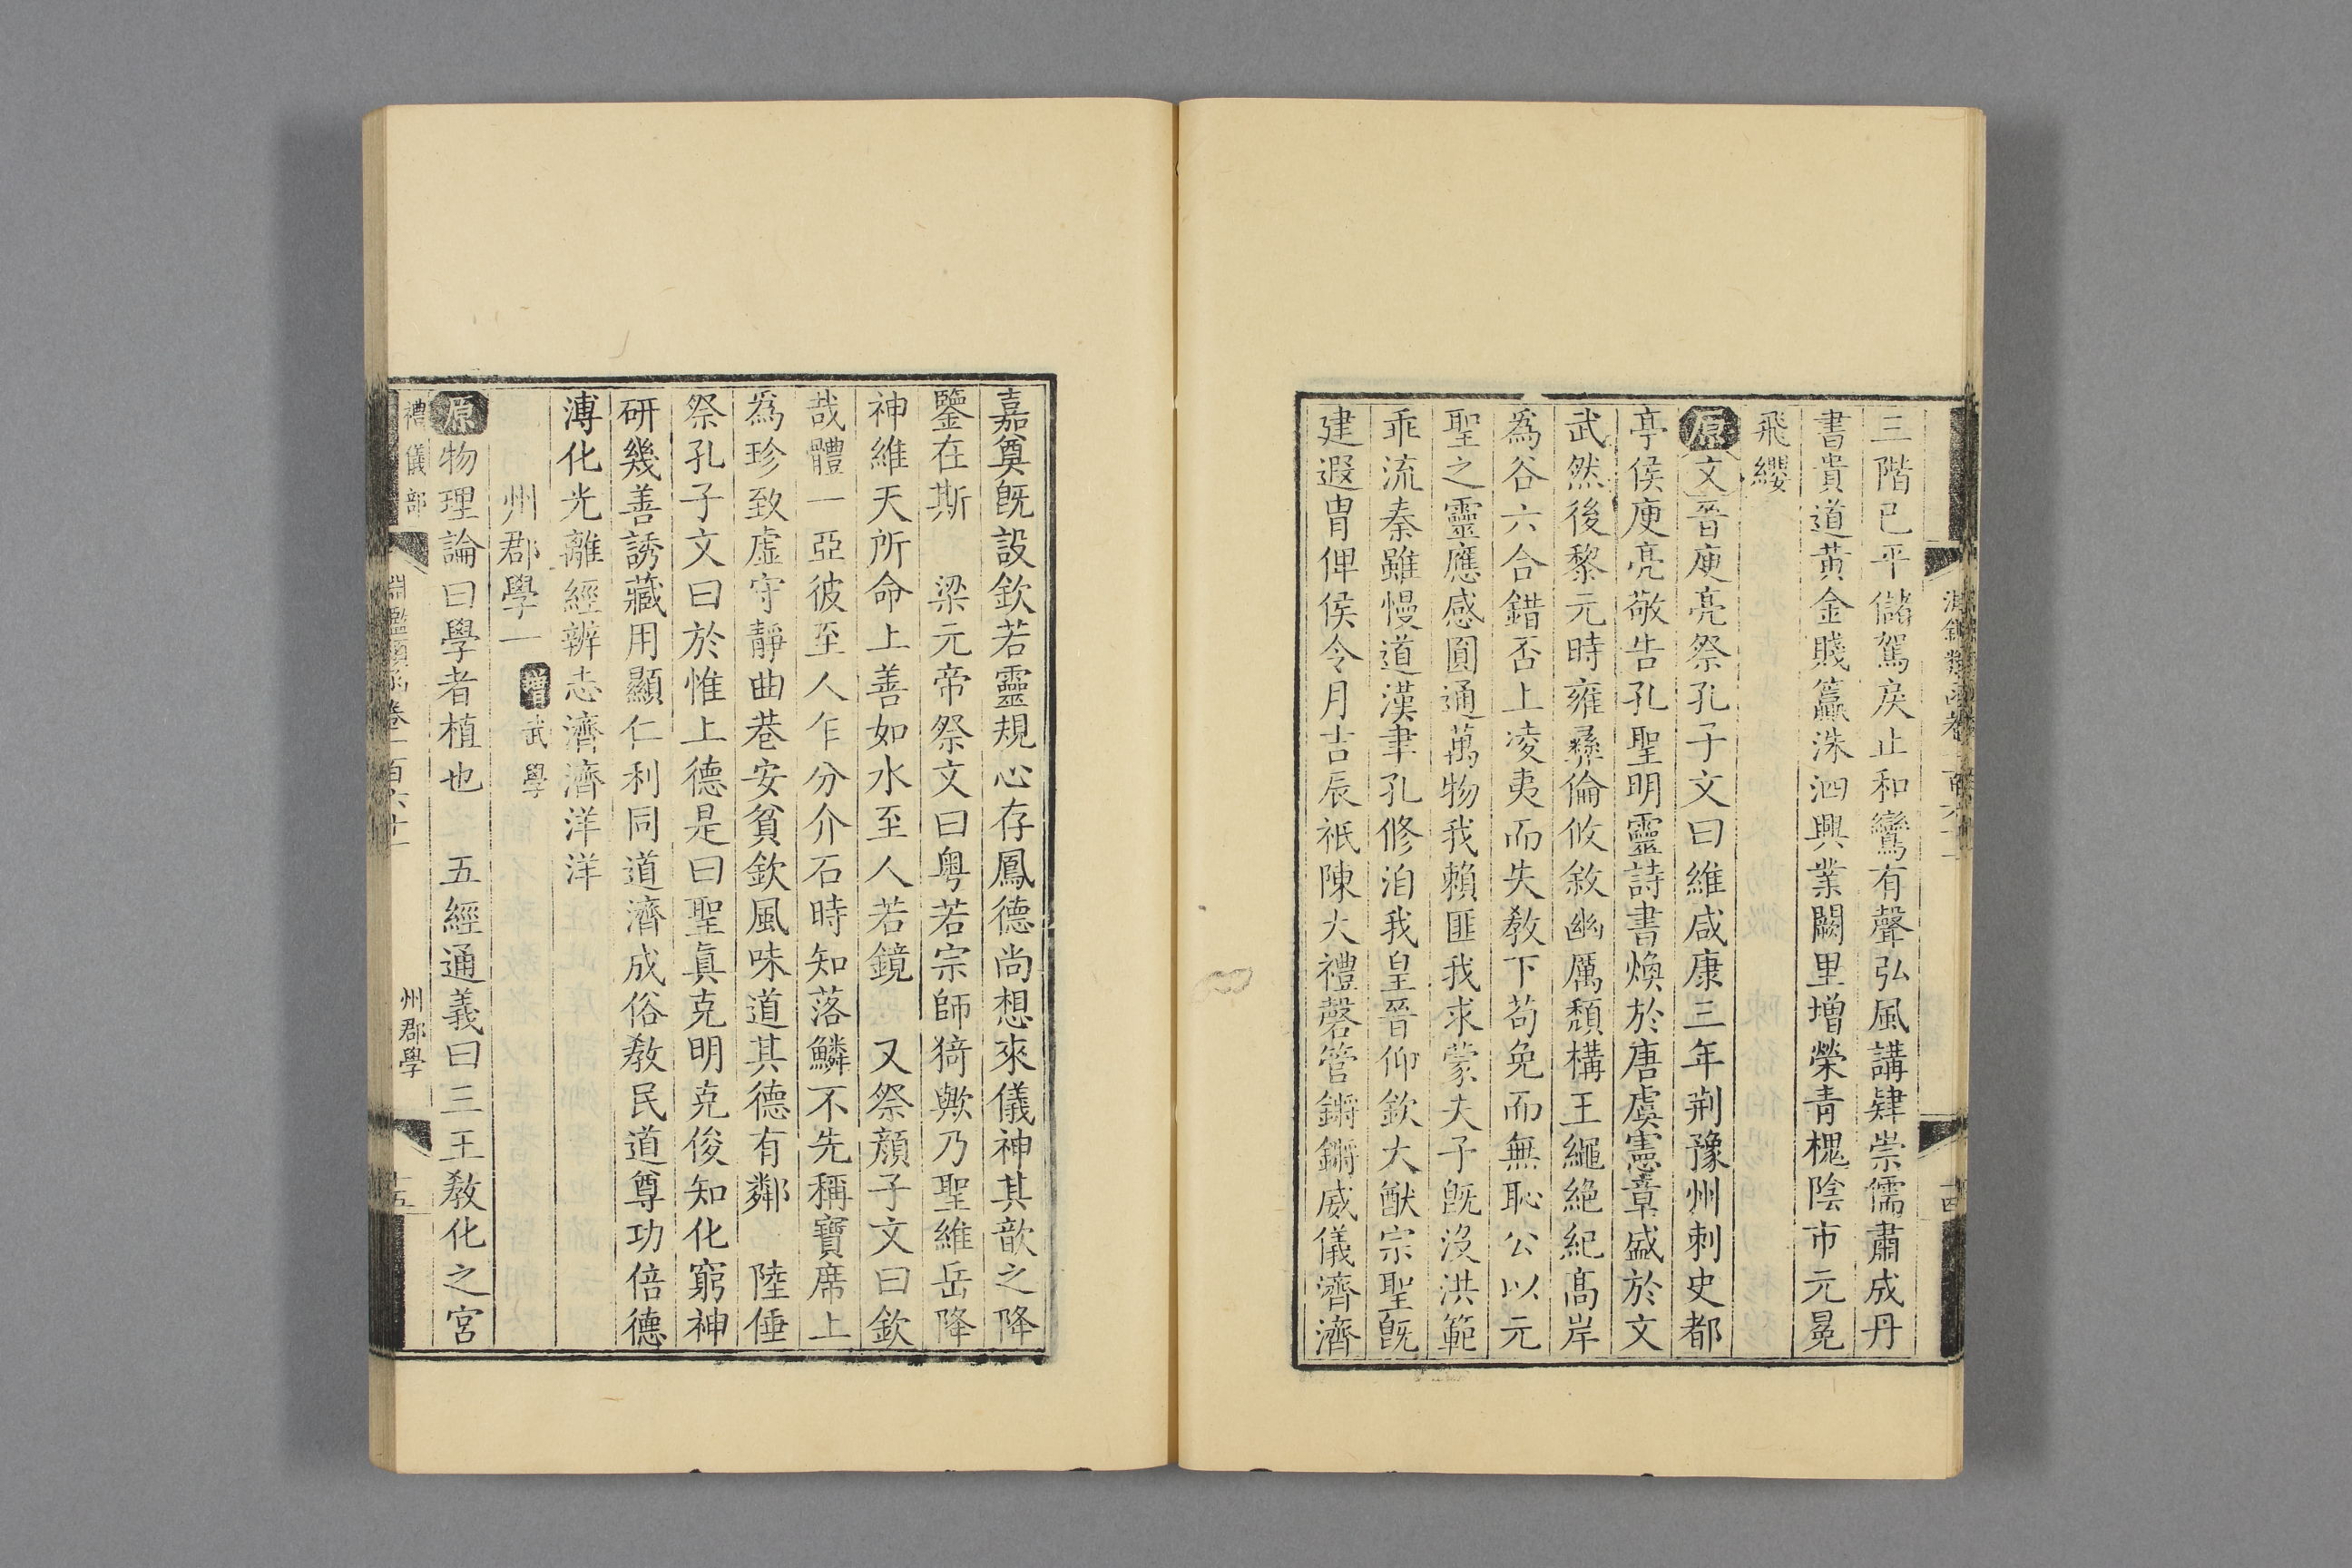 三階已平儲駕戾止和鸞有聲弘風講肄崇儒肅成丹
書貴道黃金賤籯洙泗興業闕里增榮青槐陰市元冕
飛纓
原文晉庾亮祭孔子文曰維咸康三年荆豫州刺史都
亭侯庾亮敬告孔聖明靈詩書煥於唐虞憲章盛於文
武然後黎元時雍彞倫攸敘幽厲頹構王繩絶紀高岸
爲谷六合錯否上凌夷而失敎下苟免而無恥公以元
聖之靈應感圓通萬物我賴匪我求蒙夫子旣沒洪範
乖流秦雖慢道漢聿孔修洎我皇晉仰欽大猷宗聖旣
建遐胄俾侯令月吉辰祇陳大禮磬管鏘鏘威儀濟濟
嘉奠旣設欽若靈規心存鳳德尚想來儀神其歆之降
鑒在斯　梁元帝祭文曰粤若宗師猗歟乃聖維岳降
神維天所命上善如水至人若鏡　又祭顏子文曰欽
哉體一亞彼至人乍分介石時知落鱗不先稱寶席上
爲珍致虛守靜曲巷安貧欽風味道其德有鄰　陸倕
祭孔子文曰於惟上德是曰聖眞克明克俊知化窮神
研幾善誘藏用顯仁利同道濟成俗敎民道尊功倍德
溥化光離經辨志濟濟洋洋
州郡學一　增武學
原物理論曰學者植也　五經通義曰三王敎化之宮
禮儀部　淵鑑類函卷一百六十一　州郡學　十五